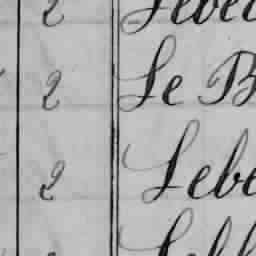 2 Lebe
2 Le B
2 Lebe